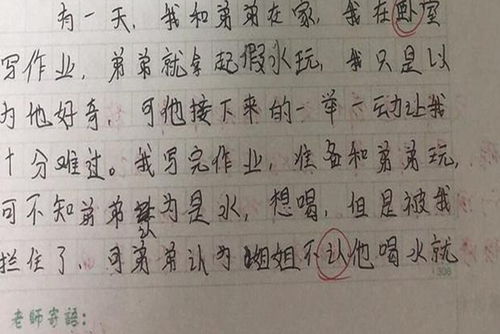 有一天，我和弟弟在家，我在卧室
写作业，弟弟就拿起假水玩，我只是以
为他好奇，可他接下来的一举一动让我
十分难过。我写完作业，准备和弟弟玩，
可不知弟弟为是水，想喝，但是被我
拦住了，可弟弟认为姐姐不认他喝水就
308
老師寄語：